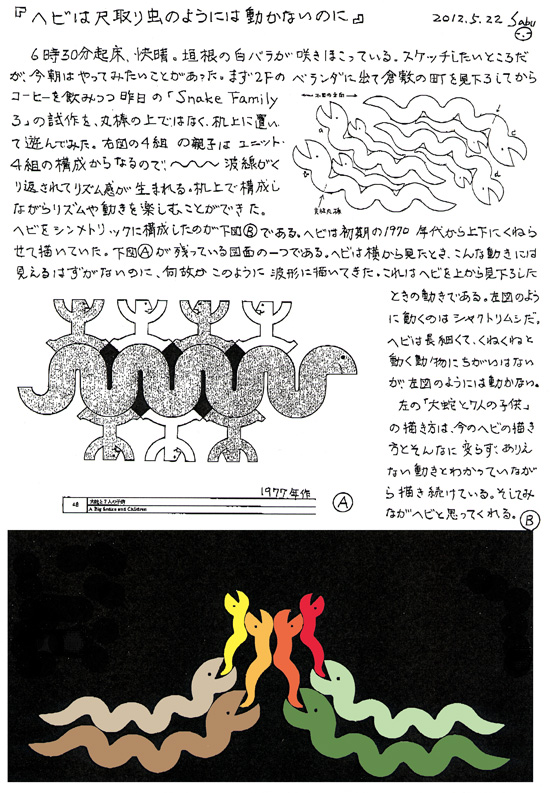 『ヘビは尺取り虫のようには動かないのに』
2012.5.22 Sabu
6時30分起床、快晴。垣根の白バラが咲きほこっている。スケッチしたいところだ
が、今朝はやってみたいことがあった。まず2Fのベランダに出て倉敷の町を見下ろしてから
コーヒーを飲みつつ昨日の「Snake Family
3」の試作を、丸棒の上ではなく、机上に置い
て遊んでみた。右図の4組の親子はユニット
4組の構成からなるので、〜〜〜波線がく
り返されてリズム感が生まれる。机上で構成し
ながらリズムや動きを楽しむことができた。
ヘビをシンメトリックに構成したのが下図Ⓑである。ヘビは初期の1970年代から上下にくねら
せて描いていた。下図Ⓐが残っている図面の一つである。ヘビは横から見たとき、こんな動きには
見えるはずがないのに、何故かこのように波形に描いてきた。これはヘビを上から見下ろした
ときの動きである。左図のよう
に動くのはシャクトリムシだ。
ヘビは長細くて、くねくねと
動く動物にちがいはない
が左図のようには動かない。
左の「大蛇と7人の子供」
の描き方は、今のヘビの描き
方とそんなに変らず、ありえ
ない動きとわかっていなが
ら描き続けている。そしてみ
ながヘビと思ってくれる。
Ⓑ
1977年作
Ⓐ
48
大蛇と7人の子供
A Big Snake and Children